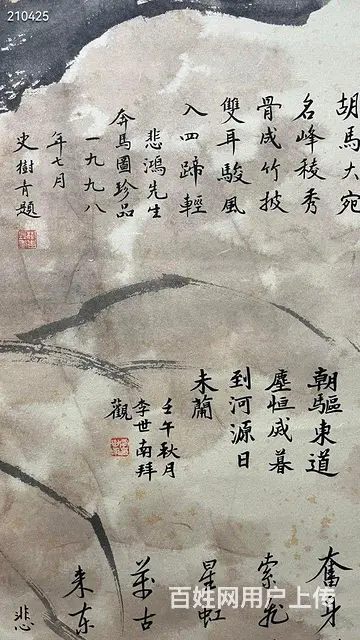 210425
胡馬大宛
名峰稜秀
骨成竹披
雙耳駿風
入四蹄輕
悲鴻先生
奔馬圖珍品
一九九八
年七月
史樹青題
朝驅東道
塵恒滅暮
到河源日
未蘭
壬午秋月
李世南拜
觀
奮身
索飛
星虹
萬古
来东
悲
百姓网用户上传